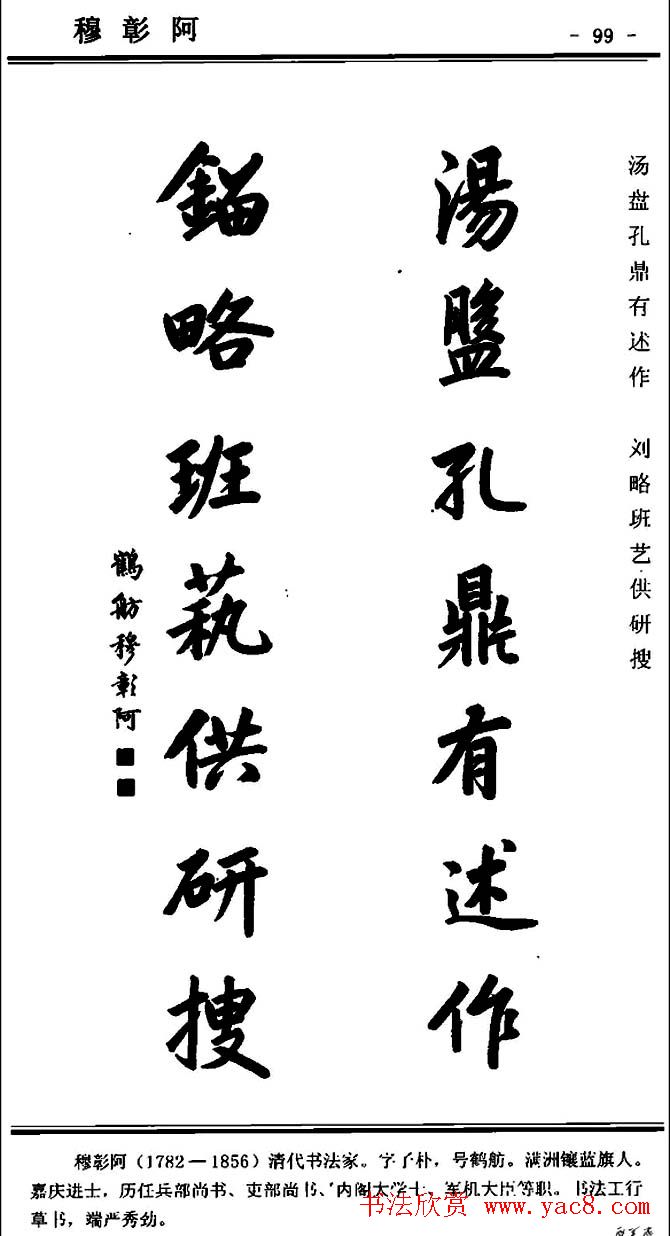 穆彰阿
- 99 -
汤盘孔鼎有述作 刘略班艺供研搜
湯盤孔鼎有述作
鎦略班藝供研搜
鶴舫穆彰阿
穆彰阿（1782—1856）清代书法家。字子朴，号鹤舫。满洲镶蓝旗人。
嘉庆进士，历任兵部尚书、吏部尚书、内阁大学士、军机大臣等职。书法工行
草书，端严秀劲。
书法欣赏 www.yac8.com